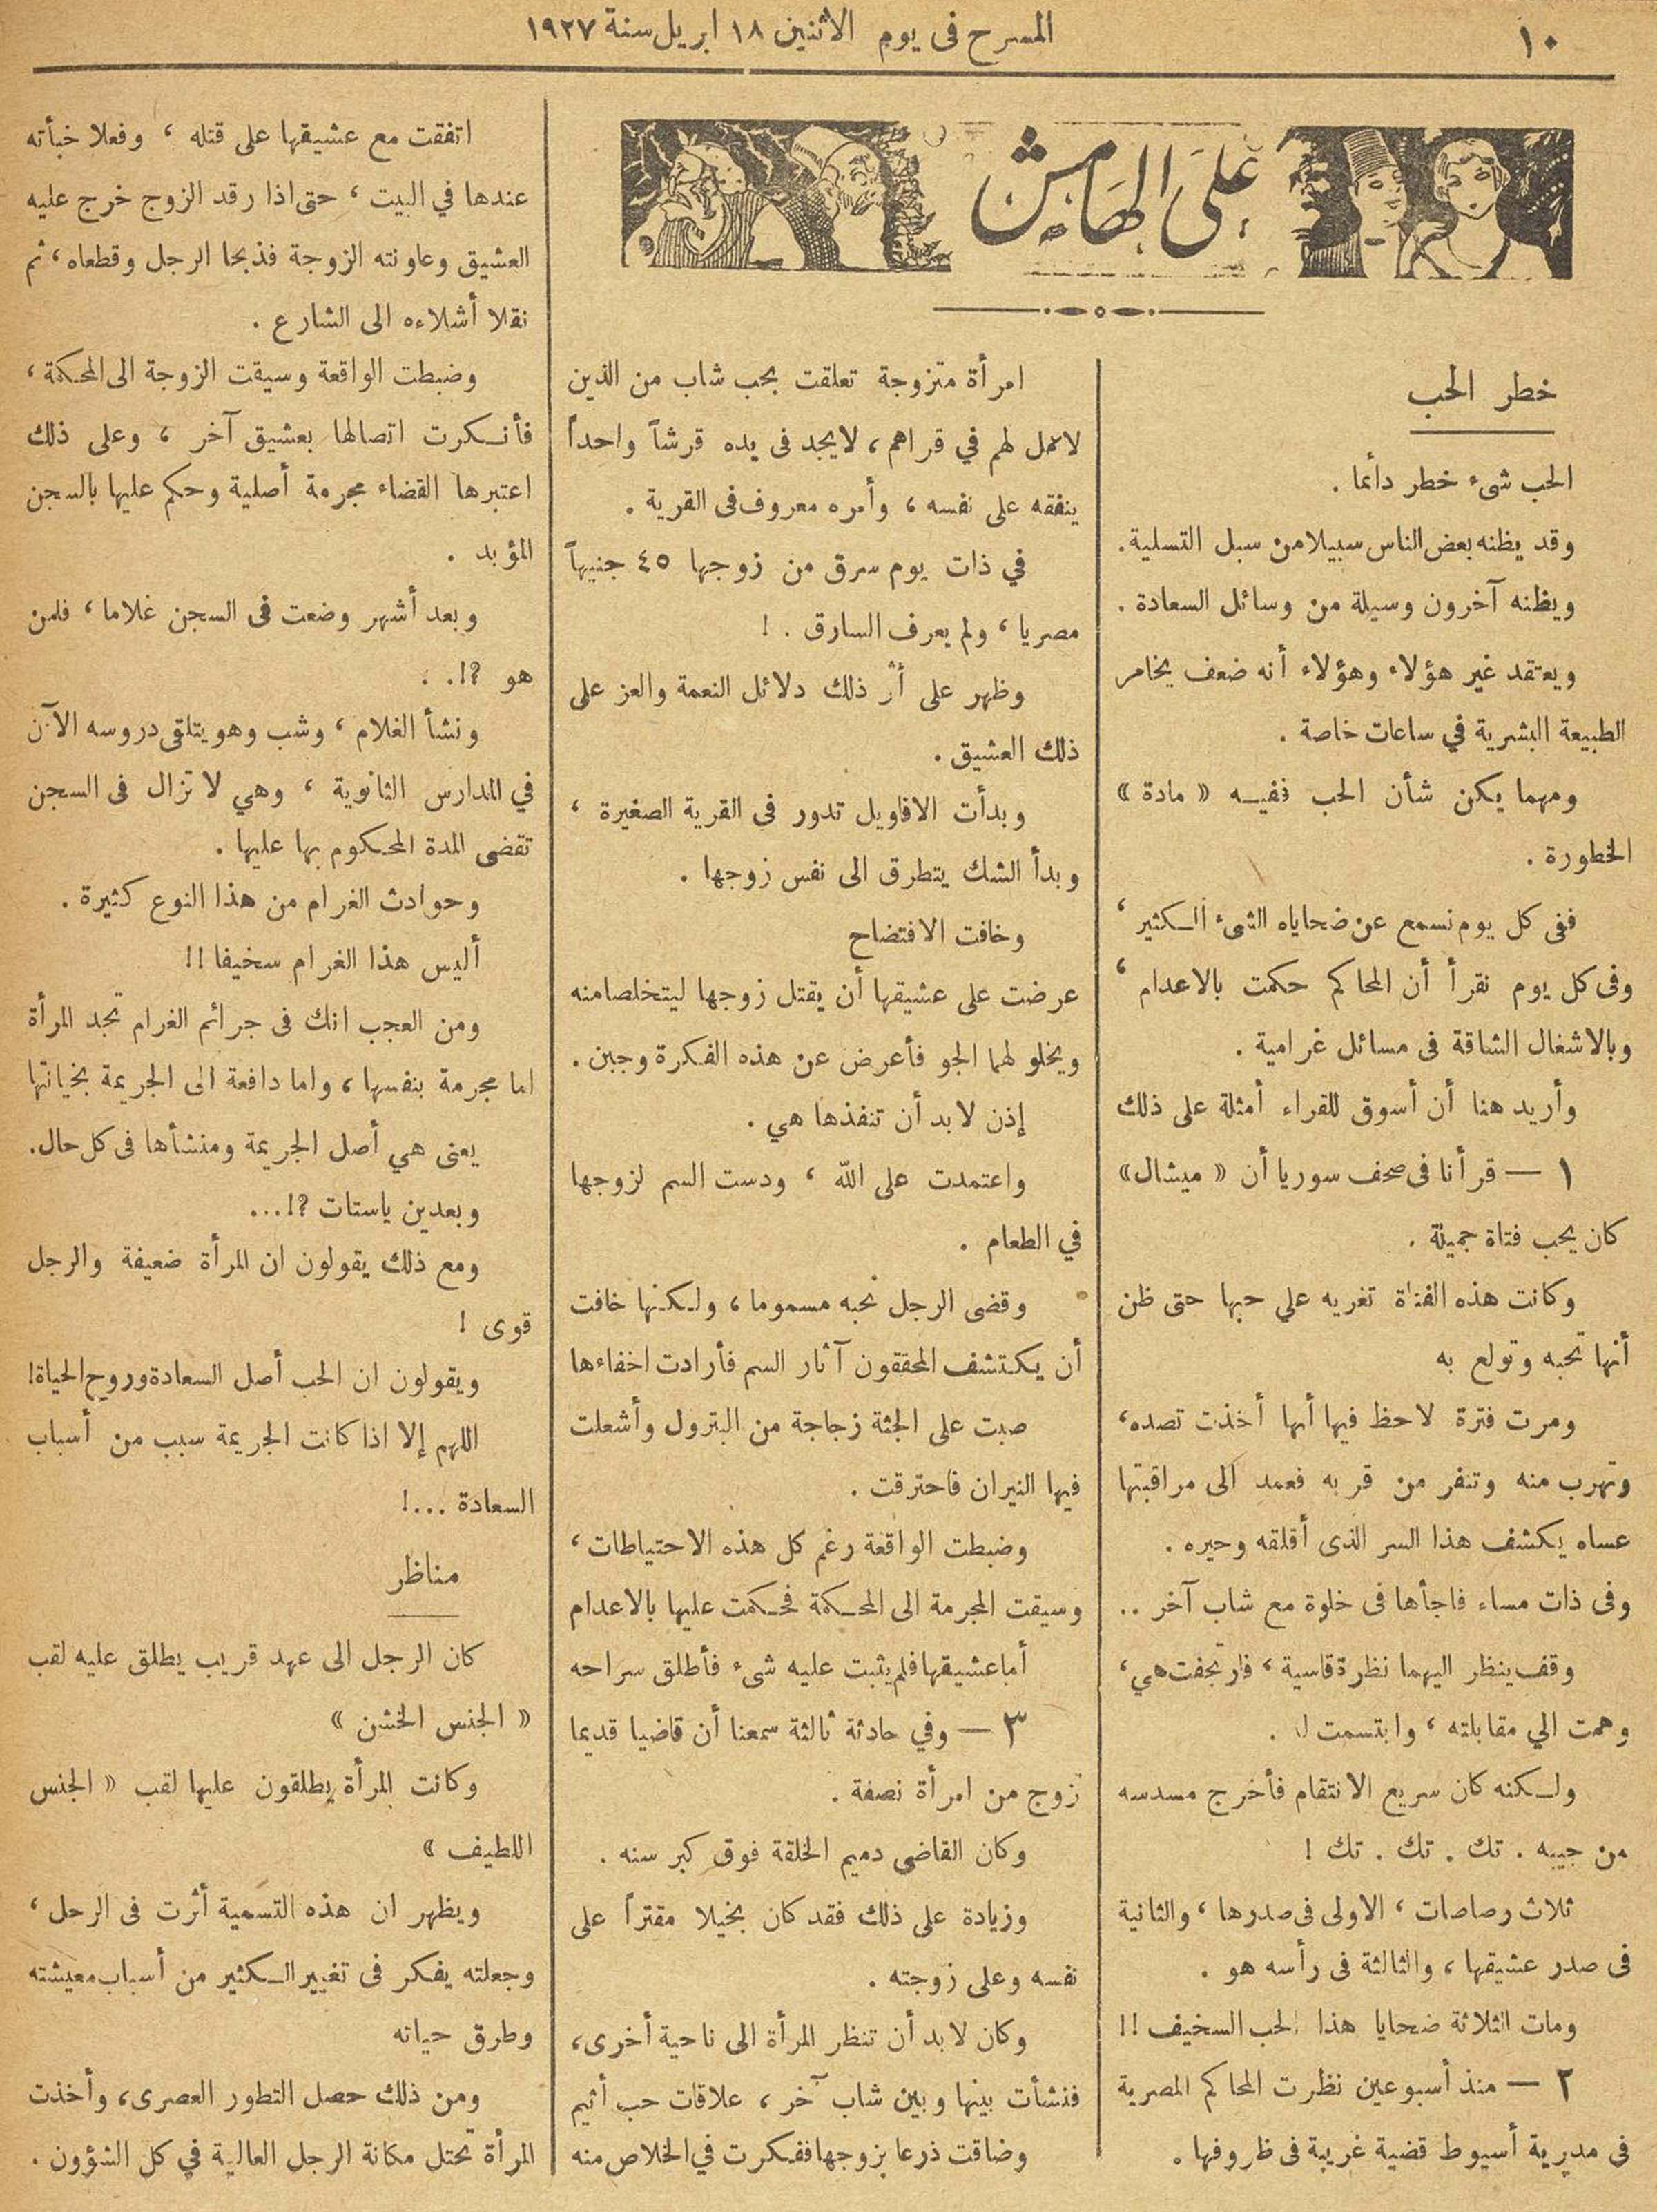 ١٠
المسرح فى يوم الاثنين ١٨ ابريل سنة ١٩٢٧
على الهامش
خطر الحب
الحب شىء خطر دائما .
وقد يظنه بعض الناس سبيلا من سبل التسلية .
ويظنه آخرون وسيلة من وسائل السعادة .
ويعتقد غير هؤلاء وهؤلاء أنه ضعف يخامر
الطبيعة البشرية في ساعات خاصة .
ومهما يكن شأن الحب ففيه « مادة »
الخطورة .
ففى كل يوم نسمع عن ضحاياه الشىء الكثير ،
وفى كل يوم نقرأ أن المحاكم حكمت بالاعدام ،
وبالاشغال الشاقة فى مسائل غرامية .
وأريد هنا أن أسوق للقراء أمثلة على ذلك
١ — قرأنا فى صحف سوريا أن « ميشال »
كان يحب فتاة جميلة .
وكانت هذه الفتاة تغريه على حبها حتى ظن
أنها تحبه وتولع به
ومرت فترة لاحظ فيها أنها أخذت تصده ،
وتهرب منه وتنفر من قربه فعمد الى مراقبتها
عساه يكشف هذا السر الذى أقلقه وحيره .
وفى ذات مساء فاجأها فى خلوة مع شاب آخر ..
وقف ينظر اليهما نظرة قاسية ، فارتجفت هي ،
وهمت الي مقابلته ، وابتسمت له .
ولكنه كان سريع الانتقام فأخرج مسدسه
من جيبه . تك . تك . تك !
ثلاث رصاصات ، الاولى فى صدرها ، والثانية
فى صدر عشيقها ، والثالثة فى رأسه هو .
ومات الثلاثة ضحايا هذا الحب السخيف !!
٢ — منذ أسبوعين نظرت المحاكم المصرية
فى مديرية أسيوط قضية غريبة فى ظروفها .
امرأة متزوجة تعلقت بحب شاب من الذين
لا عمل لهم في قراهم ، لا يجد فى يده قرشاً واحداً
ينفقه على نفسه ، وأمره معروف فى القرية .
في ذات يوم سرق من زوجها ٤٥ جنيهاً
مصريا ، ولم يعرف السارق . !
وظهر على أثر ذلك دلائل النعمة والعز على
ذلك العشيق .
وبدأت الاقاويل تدور فى القرية الصغيرة ،
وبدأ الشك يتطرق الى نفس زوجها .
وخافت الافتضاح
عرضت على عشيقها أن يقتل زوجها ليتخلصا منه
ويخلو لهما الجو فأعرض عن هذه الفكرة وجبن .
إذن لا بد أن تنفذها هي .
واعتمدت على الله ، ودست السم لزوجها
في الطعام .
وقضى الرجل نحبه مسموما ، ولكنها خافت
أن يكتشف المحققون آثار السم فأرادت اخفاءها
صبت على الجثة زجاجة من البترول وأشعلت
فيها النيران فاحترقت .
وضبطت الواقعة رغم كل هذه الاحتياطات ،
وسيقت المجرمة الى المحكمة فحكمت عليها بالاعدام
أما عشيقها فلم يثبت عليه شىء فأطلق سراحه
٣ — وفي حادثة ثالثة سمعنا أن قاضيا قديما
زوج من امرأة نصفة .
وكان القاضى دميم الخلقة فوق كبر سنه .
وزيادة على ذلك فقد كان بخيلا مقتراً على
نفسه وعلى زوجته .
وكان لا بد أن تنظر المرأة الى ناحية أخرى ،
فنشأت بينها وبين شاب آخر ، علاقات حب أثيم
وضاقت ذرعا بزوجها ففكرت في الخلاص منه
اتفقت مع عشيقها على قتله ، وفعلا خبأته
عندها في البيت ، حتى اذا رقد الزوج خرج عليه
العشيق وعاونته الزوجة فذبحا الرجل وقطعاه ، ثم
نقلا أشلاءه الى الشارع .
وضبطت الواقعة وسيقت الزوجة الى المحكمة ،
فأنكرت اتصالها بعشيق آخر ، وعلى ذلك
اعتبرها القضاء مجرمة أصلية وحكم عليها بالسجن
المؤبد .
وبعد أشهر وضعت فى السجن غلاما ، فلمن
هو ?! . .
ونشأ الغلام ، وشب وهو يتلقى دروسه الآن
في المدارس الثانوية ، وهي لا تزال فى السجن
تقضى المدة المحكوم بها عليها .
وحوادث الغرام من هذا النوع كثيرة .
أليس هذا الغرام سخيفا !!
ومن العجب انك فى جرائم الغرام تجد المرأة
اما مجرمة بنفسها ، واما دافعة الى الجريمة بخيانتها
يعنى هي أصل الجريمة ومنشأها فى كل حال .
وبعدين ياستات ?! ...
ومع ذلك يقولون ان المرأة ضعيفة والرجل
قوى !
ويقولون ان الحب أصل السعادة وروح الحياة !
اللهم إلا اذا كانت الجريمة سبب من أسباب
السعادة ... !
مناظر
كان الرجل الى عهد قريب يطلق عليه لقب
« الجنس الخشن »
وكانت المرأة يطلقون عليها لقب « الجنس
اللطيف »
ويظهر ان هذه التسمية أثرت فى الرجل ،
وجعلته يفكر فى تغيير الكثير من أسباب معيشته
وطرق حياته
ومن ذلك حصل التطور العصرى ، وأخذت
المرأة تحتل مكانة الرجل العالية في كل الشؤون .